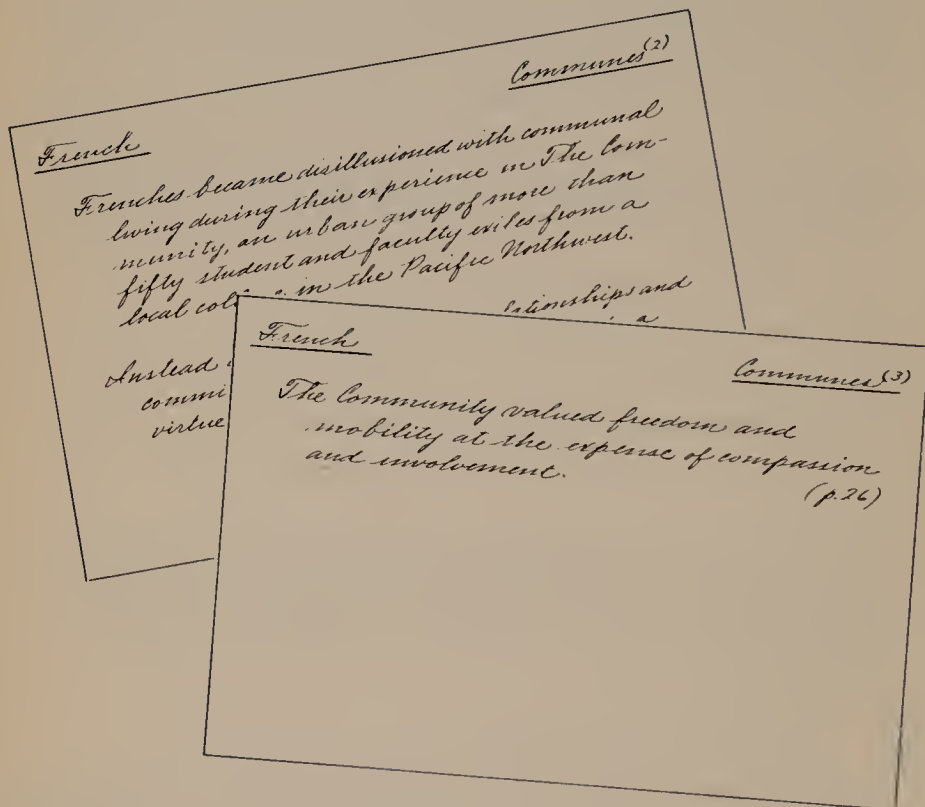 Communes (2)
French
Frenches became disillusioned with communal
living during their experience in The Com-
munity, an urban group of more than
fifty student and faculty exiles from a
local in the Pacific Northwest.
and
Instead a
virtue
French
Communes (3)
The Community valued freedom and
mobility at the expense of compassion
and involvement.
(p.26)